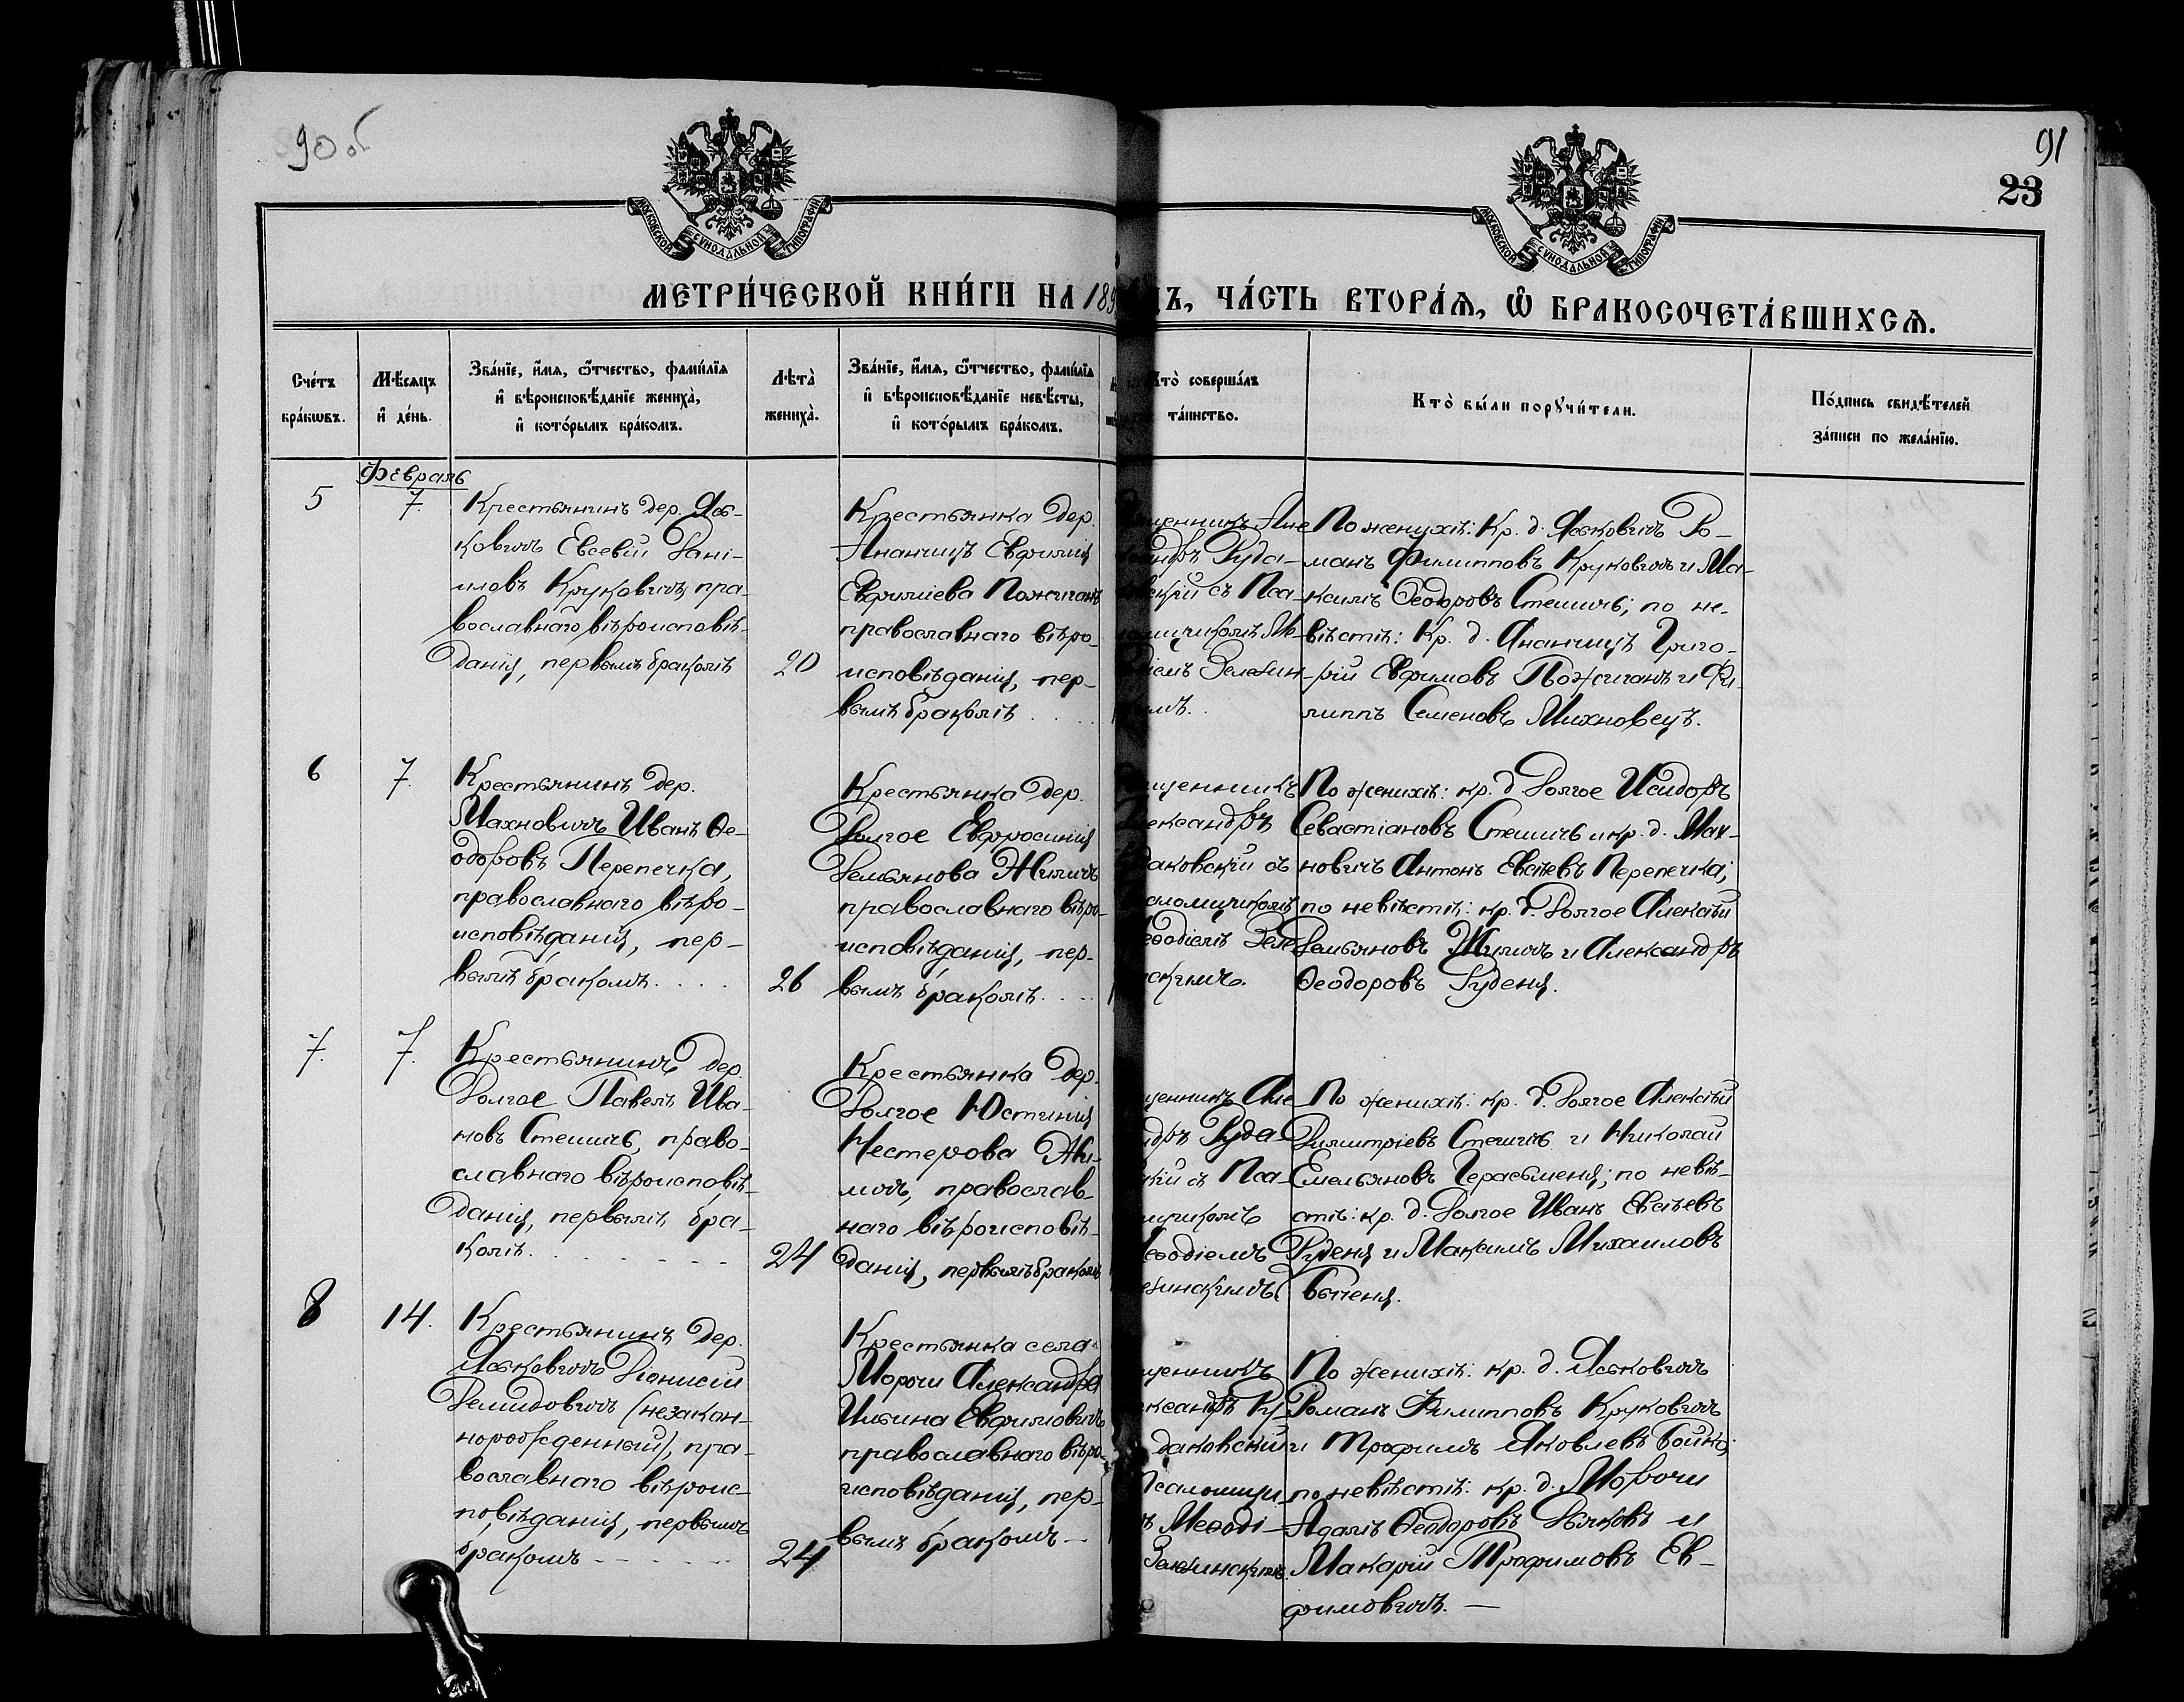 90 об
91
23
МОСКОВСКОЙ СУНОДАЛЬНОЙ ТИПОГРАФІИ
МОСКОВСКОЙ СУНОДАЛЬНОЙ ТИПОГРАФІИ
МЕТРИ́ЧЕСКОЙ КНИ́ГИ НА 189
ЧА́СТЬ ВТОРА́Ѧ, Ѽ БРАКОСОЧЕТА́ВШИХСѦ.
Сче́тъ
бра́кѡвъ.
Мѣ́сяцъ
и҆ де́нь.
Зва́нїе, и҆́мя, ѻ҆́тчество, фами́лїя
и҆ вѣроисповѣ́данїе жениха̀,
и҆ кото́рымъ бра́комъ.
Лѣта̀
жениха̀.
Зва́нїе, и҆́мя, ѻ҆́тчество, фами́лїя
и҆ вѣроисповѣ́данїе невѣ́сты,
и҆ кото́рымъ бра́комъ.
Кто̀ соверша́лъ
та́инство.
Кто̀ бы́ли порꙋчи́тели.
По́дпись свидѣ́телей
за́писи по жела́нїю.
Февраль
5
7.
Крестьянинъ дер. Ясь-
ковичъ Евсевій Дані-
иловъ Круковичъ, пра-
вославнаго вѣроисповѣ-
данія, первымъ бракомъ
20
Крестьянка дер.
Ананчицъ Евфимія
Евфиміева Пожиганъ
православнаго вѣро-
исповѣданія, пер-
вымъ бракомъ . . . .
щенникъ Але
андръ Руда-
вскій съ Пса-
омщикомъ Ме-
діемъ Зелезин-
имъ.
По женихѣ: Кр. д. Яськовичъ Ро-
манъ Филипповъ Круковичъ и Ма-
ксимъ Ѳеодоровъ Стешичъ; по не-
вѣстѣ: Кр. д. Ананчицъ Григо-
рій Евфимовъ Пожиганъ и Фи-
липпъ Семеновъ Михновецъ.
6
7.
Крестьянинъ дер.
Махновичъ Иванъ Ѳе-
одоровъ Перепечка,
православнаго вѣро-
исповѣданія, пер-
вымъ бракомъ. . . .
26
Крестьянка дер.
Долгое Евфросинія
Демьянова Жиличъ
православнаго вѣро-
исповѣданія, пер-
вымъ бракомъ. . . .
щенникъ
ександръ
даковскій съ
аломщикомъ
еѳодіемъ Зеле
скимъ.
По женихѣ: кр. д. Долгое Исидоръ
Севастіановъ Стешичъ и кр. д. Мах-
новичъ Антонъ Евсѣевъ Перепечка;
по невѣстѣ: кр. д. Долгое Алексѣй
Демьяновъ Жиличъ и Александръ
Ѳеодоровъ Руденя.
7.
7.
Крестьянинъ дер.
Долгое Павелъ Ива-
новъ Стешичъ, право-
славнаго вѣроисповѣ-
данія, первымъ бра-
комъ. . . . . . .
24
Крестьянка дер.
Долгое Юстинія
Нестерова
православ-
наго вѣроисповѣ-
данія, первымъ бракомъ
щенникъ Але
ндръ Руда-
кій съ Пса-
мщикомъ
еѳодіемъ
езинскимъ.
По женихѣ: кр. д. Долгое Алексѣй
Димитріевъ Стешичъ и Николай
Емельяновъ Герасьменя; по невѣ-
стѣ: кр. д. Долгое Иванъ Евсѣевъ
Руденя и Максимъ Михаиловъ
Быченя.
8
14.
Крестьянинъ дер.
Яськовичъ Діонисій
Демидовичъ (незакон-
норожденный), пра-
вославнаго вѣроис-
повѣданія, первымъ
бракомъ - - - - - -
24
Крестьянка села
Морочи Александра
Ильина Евфимовичъ
православнаго вѣро-
исповѣданія, пер-
вымъ бракомъ —
щенникъ
ксандръ Ру-
даковскій
Псаломщи-
ъ Меѳоді-
Зелезинскимъ.
По женихѣ: кр. д. Яськовичъ
Романъ Филипповъ Круковичъ
и Трофимъ Яковлевъ Бойко;
по невѣстѣ: кр. д. Морочи
Адамъ Ѳеодоровъ Дьяковъ и
Макарій Трофимовъ Ев-
фимовичъ. —